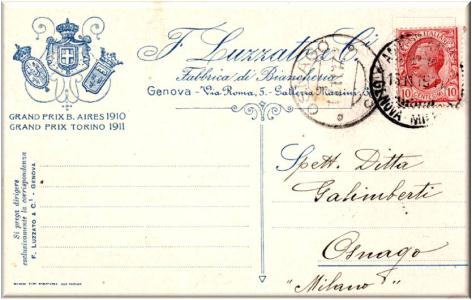 F. Luzzato & Ci
Fabbrica di Biancheria
Genova - Via Roma, 5. - Galleria Mazzini,
GRAND PRIX B. AIRES 1910
GRAND PRIX TORINO 1911
Si prega dirigere
esclusivamente la corrispondenza
F. LUZZATO & C.I - GENOVA
OSNAGO
GENOVA
10 CENTESIMI 10
Spett. Ditta
Galimberti
Osnago
"Milano"